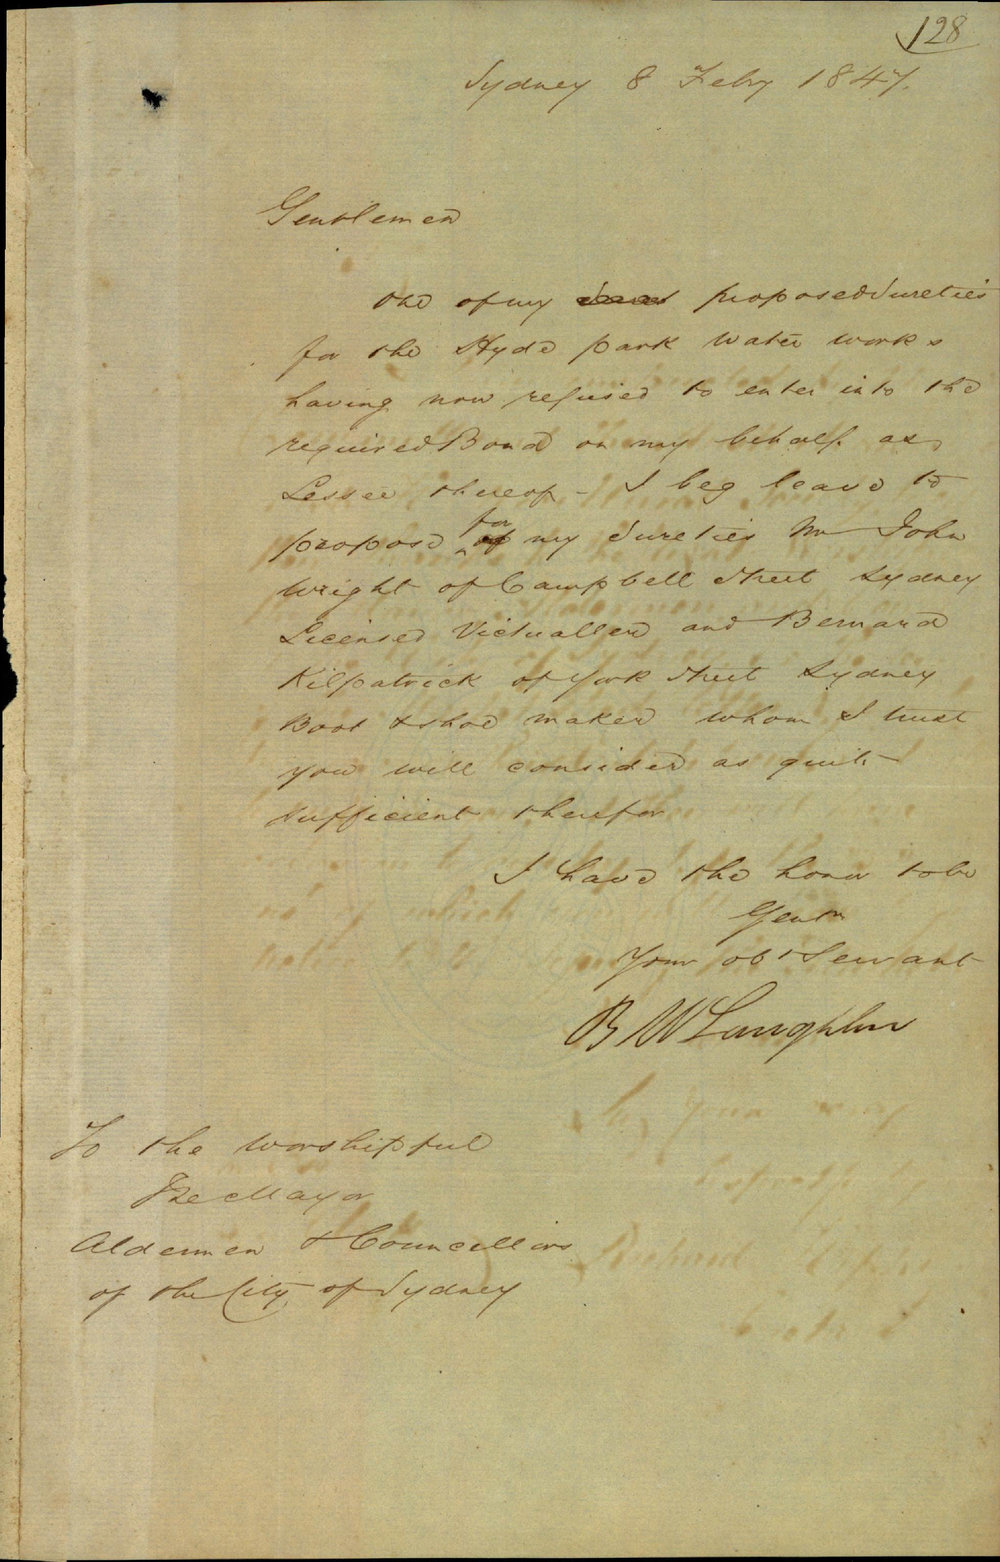 128
Sydney 8 Feby 1847.
Gentlemen
One of my proposed Sureties
for the Hyde park Water works
having now refused to enter into the
required Bond on my behalf as
Lessee thereof - I beg leave to
propose for my Sureties Mr John
Wright of Campbell Street Sydney
Licensed Victualler and Bernard
Kilpatrick of York Street Sydney
Boot & shoe maker whom I trust
you will consider as quite
sufficient therefor
I have the honor to be
Gentn
Your obt Servant
B McLaughlin
To the Worshipful
The Mayor
Aldermen & Councellors
of the City of Sydney